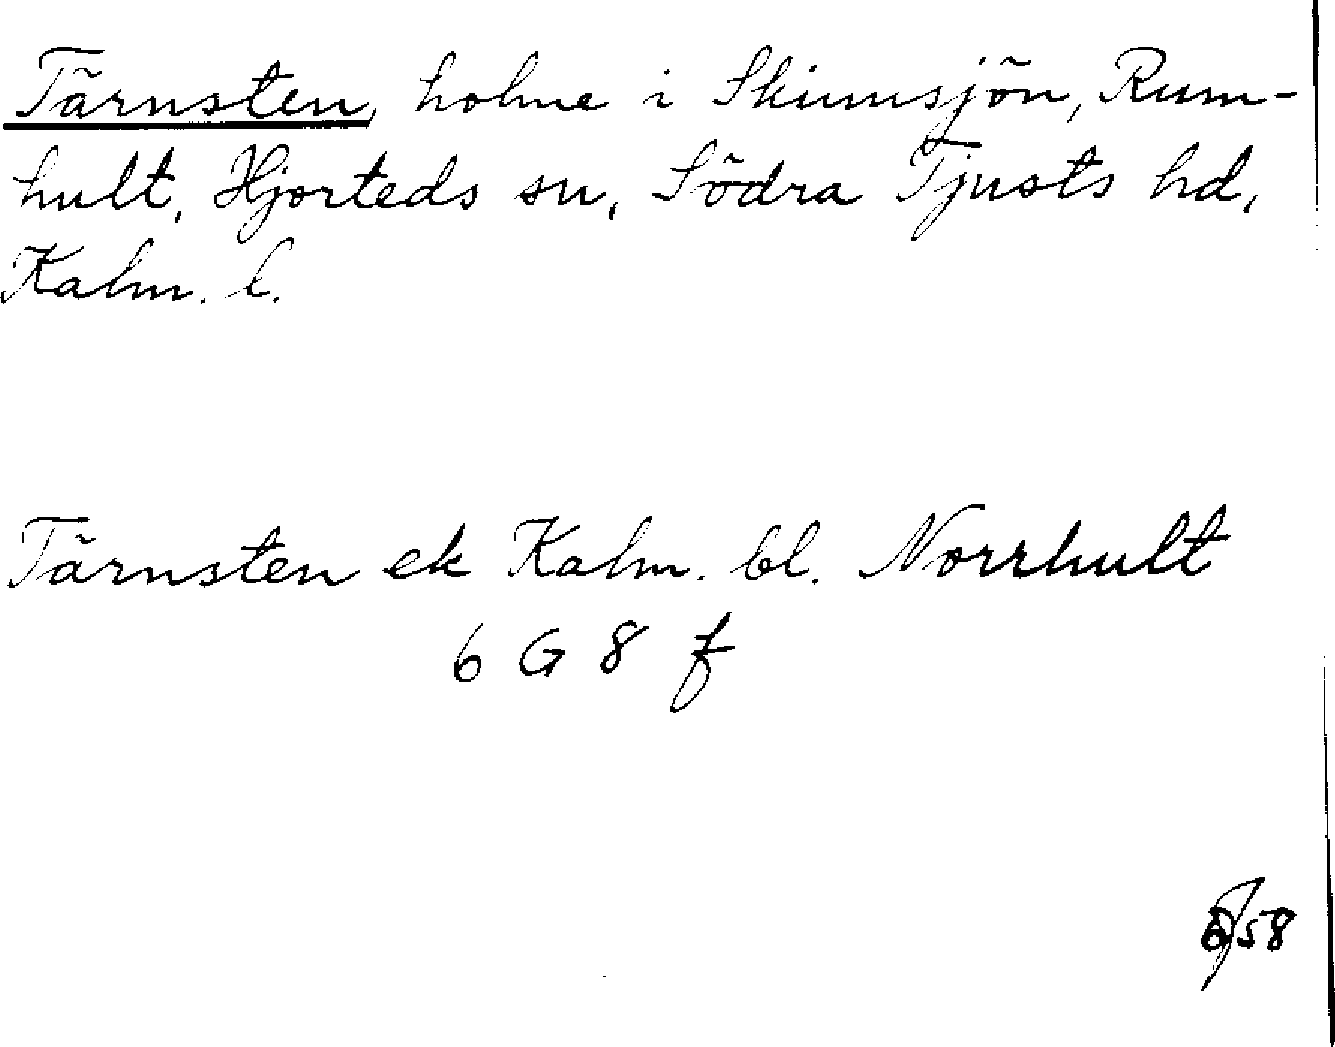 Tärnsten, holme i Skimsjön, Rum-
hult, Hjorteds sn, Södra Tjusts hd,
Kalm. l.
Tärnsten ek Kalm. bl. Norrhult
6 G 8 f
58